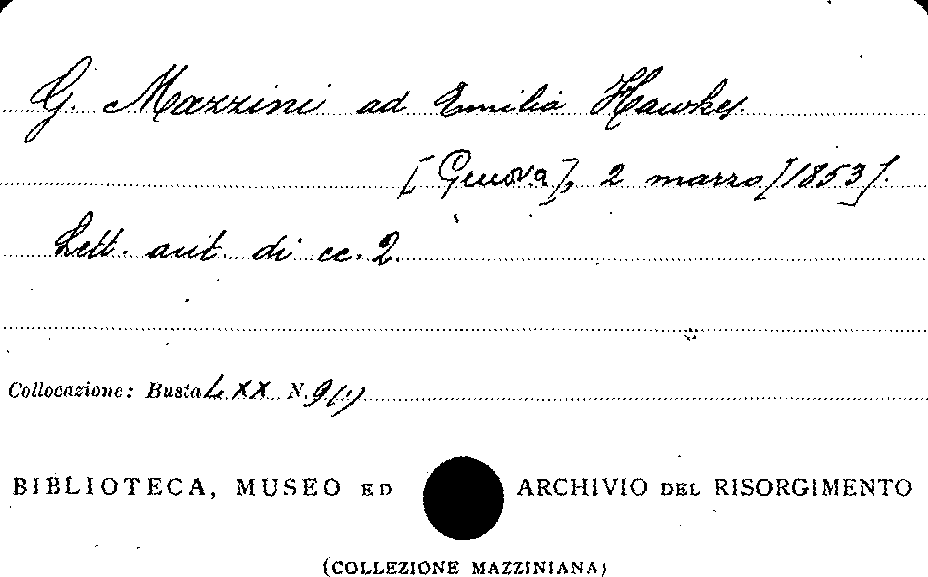 G. Mazzini ad Emilia Hawkes.
[Genova], 2 marzo [1853].
Lett. aut. di cc. 2.
Collocazione: Busta LXX N. 9(1)
BIBLIOTECA, MUSEO ED ARCHIVIO DEL RISORGIMENTO
(COLLEZIONE MAZZINIANA)